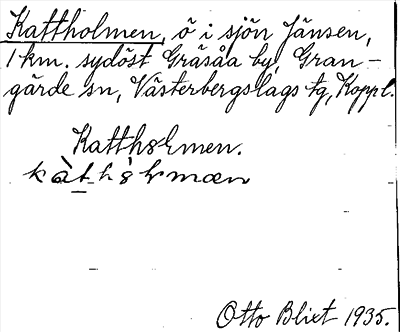 Kattholmen, ö i sjön Jänsen,
1 km. sydöst Gräsåa by, Gran-
gärde sn, Västerbergslags tg, Koppl.
Katthoɫmen.
Otto Blixt 1935.